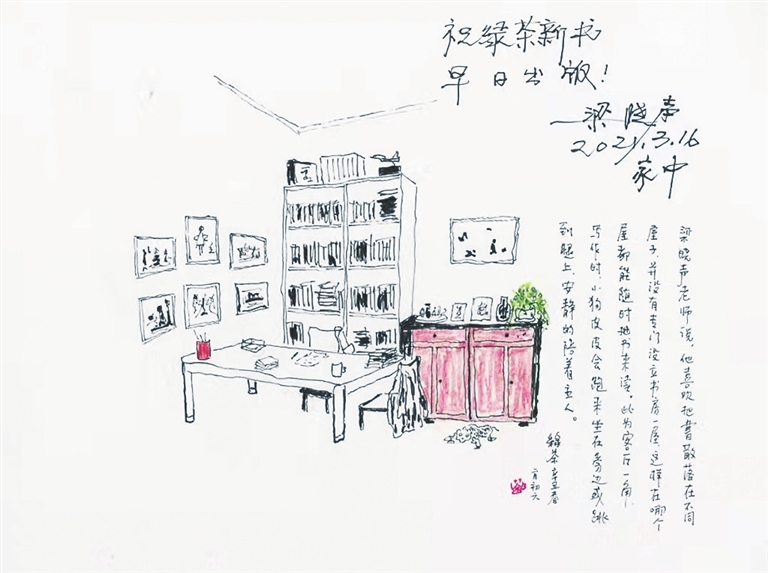 祝绿茶新书
早日出版！
梁晓声
2021.3.16
家中
梁晓声老师说，他喜欢把书散落在不同
屋子，并没有专门设立书房一屋，这样在哪个
屋都能随时把书来读。此为客厅一角，
写作时，小狗皮皮会跑来坐在旁边或跳
到腿上，安静的陪着主人。
绿茶 辛丑春
二月初六